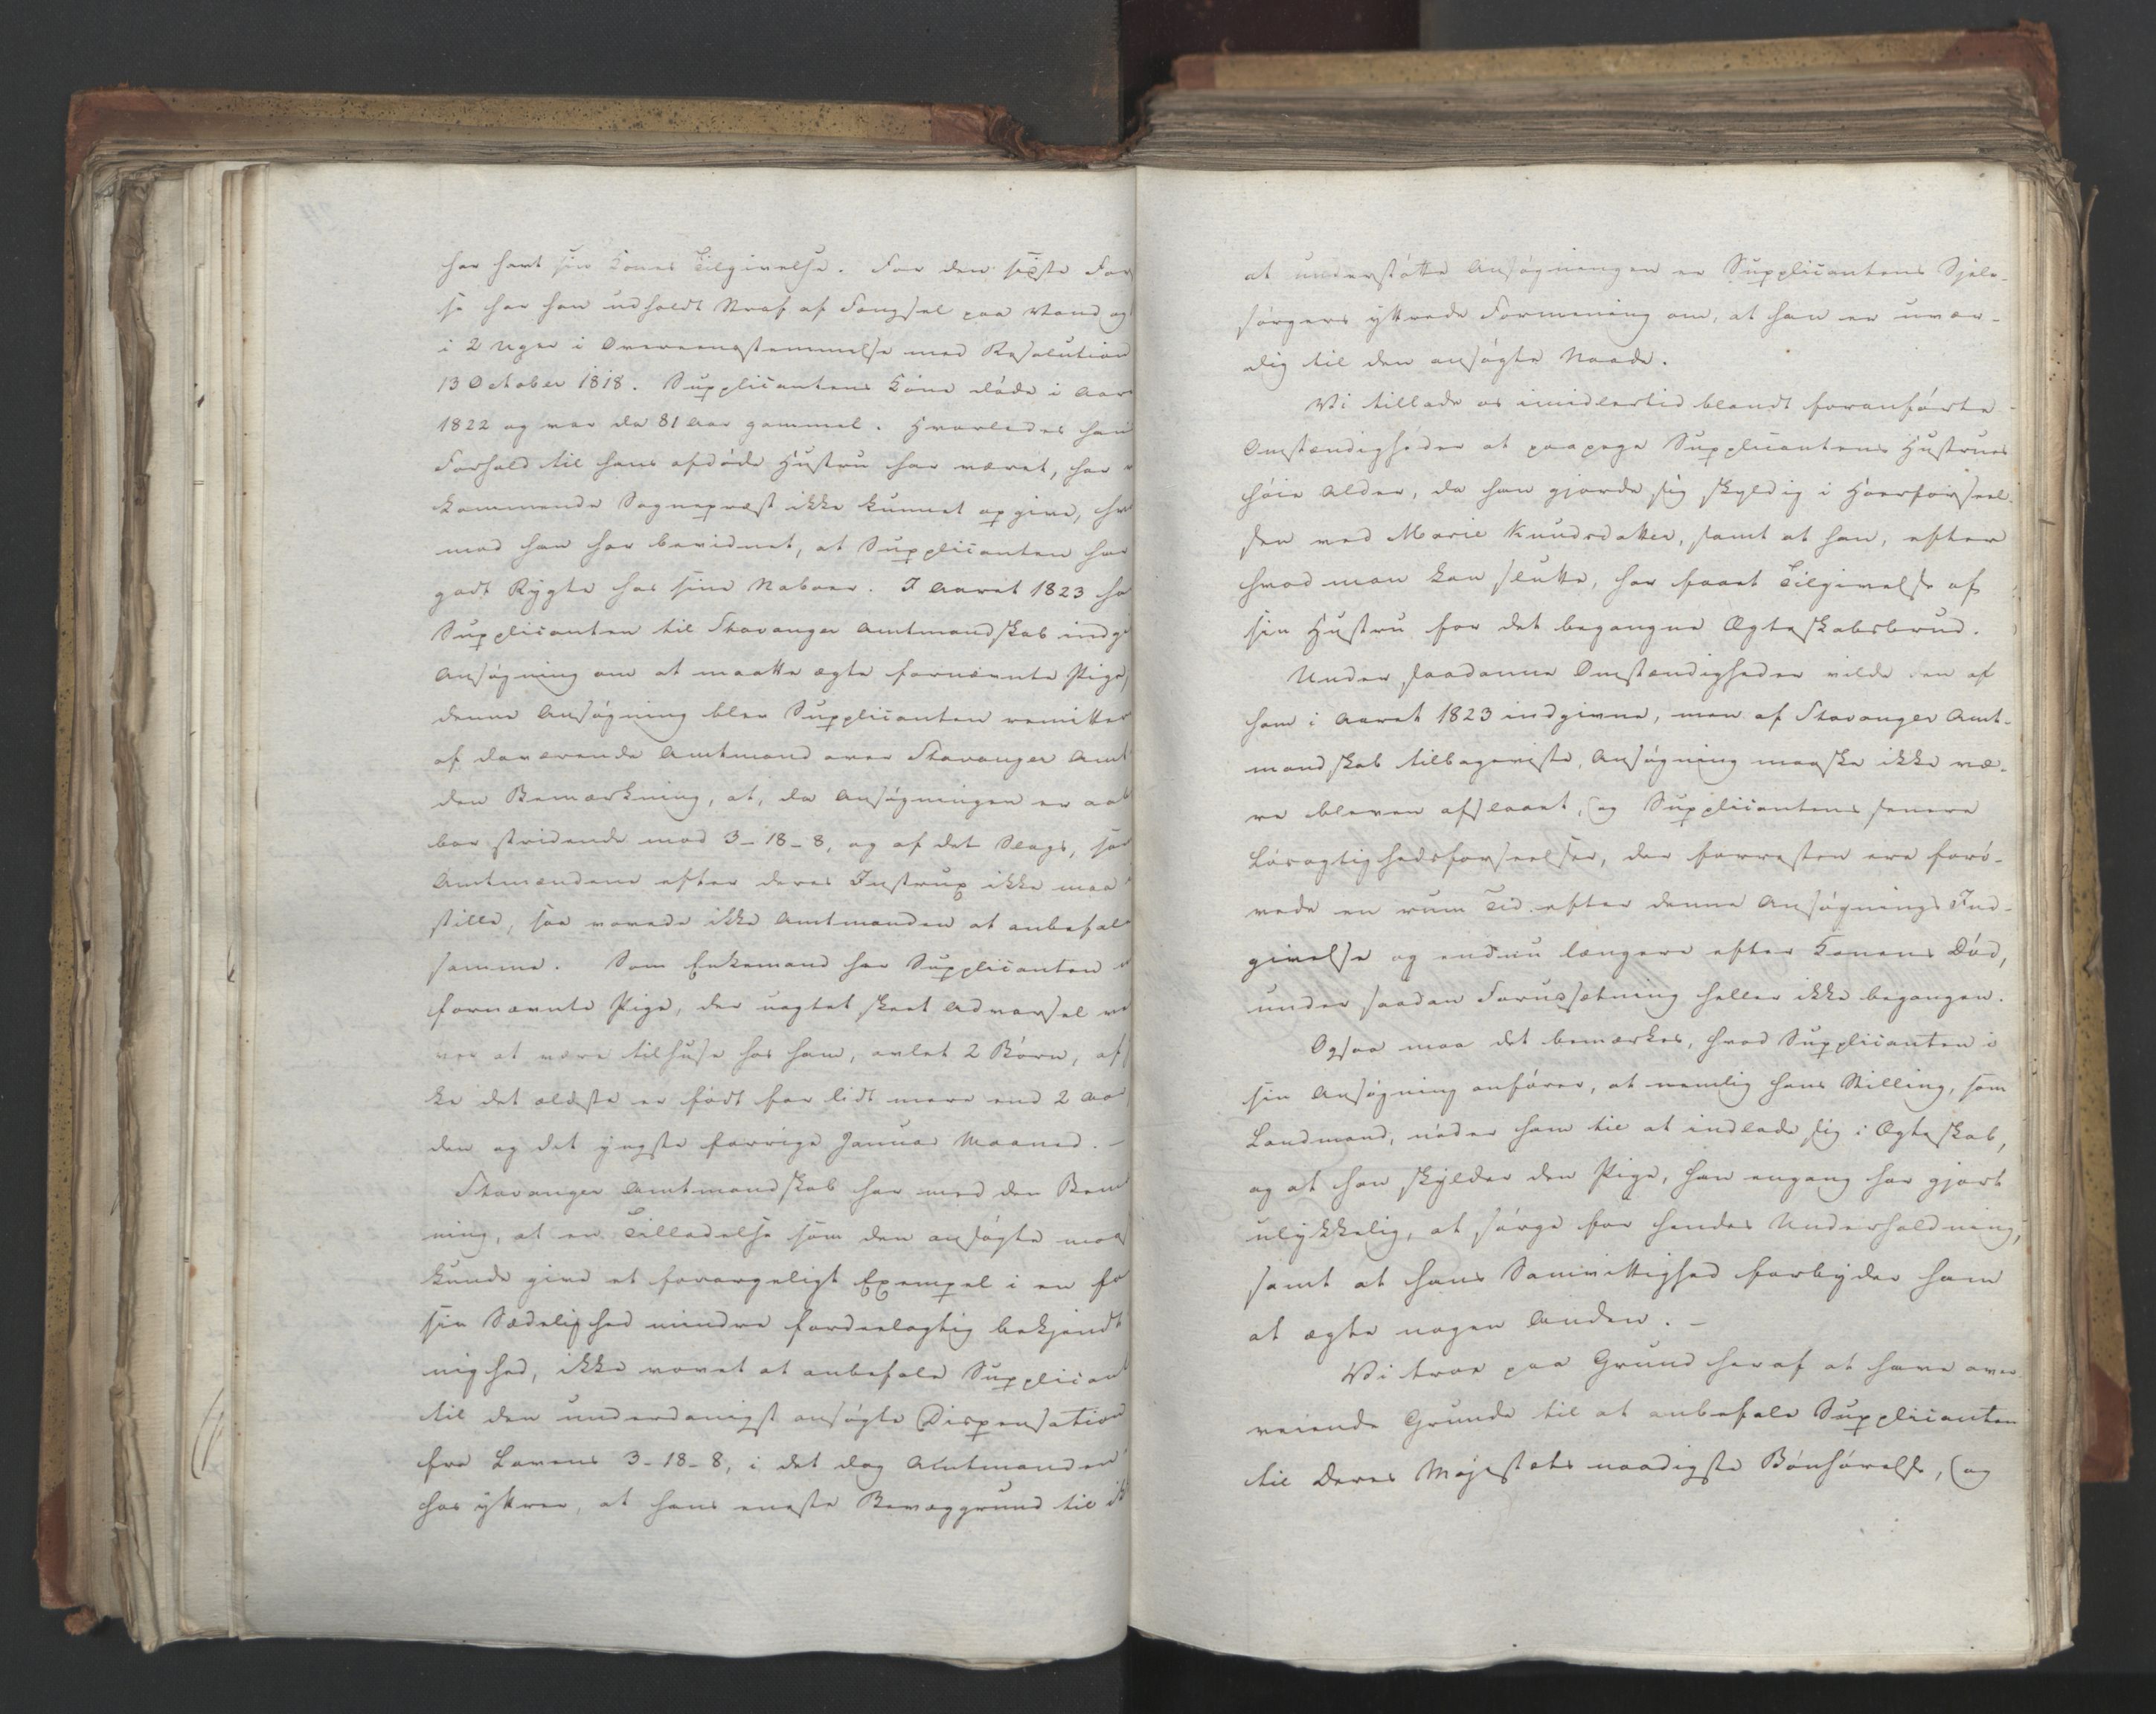 har havt sin Kones Tilgivelse. For den sidste For
se har han udholdt Straf af Fængsel paa Vand og
i 2 Uger i Overeensstemmelse med Resolution
13 October 1818. Supplicantens Kone døde i Aar
1822 og var da 81 Aar gammel. Hvorledes han
Forhold til hans afdøde Hustru har været, har
kommende Sognepræst ikke kunnet opgive, hvo
mod han har bevidnet, at Supplicanten har
godt Rygte hos sine Naboer. I Aaret 1823 ha
Supplicanten til Stavanger Amtmandskab indg
Ansøgning om at maatte ægte fornævnte Pige,
denne Ansøgning blev Supplicanten remitter
af daværende Amtmand over Stavanger Amt
den Bemærkning, at, da Ansøgningen er aab
bar stridende mod 3-18-8, og af det Slags, som
Amtmændene efter deres Instrux ikke maa
stille, saa vovede ikke Amtmanden at anbefale
samme. Som Enkemand har Supplicanten
fornævnte Pige, der uagtet skeet Advarsel
ver at være tilhuse hos ham, avlet 2 Børn, af
ke det ældste er født for lidt mere end 2 Aar
den og det yngste forrige Januar Maaned. –
Stavanger Amtmandskab har med den Bem
ning, at en Tilladelse som den ansøgte maa
kunde give et forargeligt Exempel i en fo
sin Sædelighed mindre fordeelagtig bekjendt
nighed, ikke vovet at anbefale Supplicant
til den underdanigst ansøgte Dispensation
fra Lovens 3-18-8, i det dog Amtmanden
hos yttrer, at hans eneste Bevæggrund til ik
at understøtte Ansøgningen er Supplicantens Sjele-
sørgers yttrede Formening om, at han er uvær-
dig til den ansøgte Naade.
Vi tillade os imidlertid blandt foranførte
Omstændigheder at paapege Supplicantens Hustrues
høie Alder, da han gjorde sig skyldig i Hoerforseel-
sen med Marie Knudsdatter, samt at han, efter
hvad man kan slutte, har faaet Tilgivelse af
sin Hustru for det begangne Ægteskabsbrud.
Under saadanne Omstændigheder vilde den af
ham i Aaret 1823 indgivne, men af Stavanger Amt-
mandskab tilbageviste, Ansøgning maaske ikke væ-
re bleven afslaaet, og Supplicantens senere
Løsagtighedsforseelser, der forresten ere forø-
vede en rum Tid efter denne Ansøgnings Ind-
givelse og endnu længere efter Konens Død,
under saadan Forudsætning heller ikke begangen.
Ogsaa maa det bemærkes, hvad Supplicanten i
sin Ansøgning anfører, at nemlig hans Stilling, som
Landmand, nøder ham til at indlade sig i Ægteskab,
og at han skylder den Pige, han engang har gjort
ulykkelig, at sørge for hendes Underholdning,
samt at hans Samvittighed forbyder ham
at ægte nogen Anden. –
Vi troe paa Grund heraf at have over-
veiende Grunde til at anbefale Supplicanten
til Deres Majestæts naadigste Bønhørelse, og